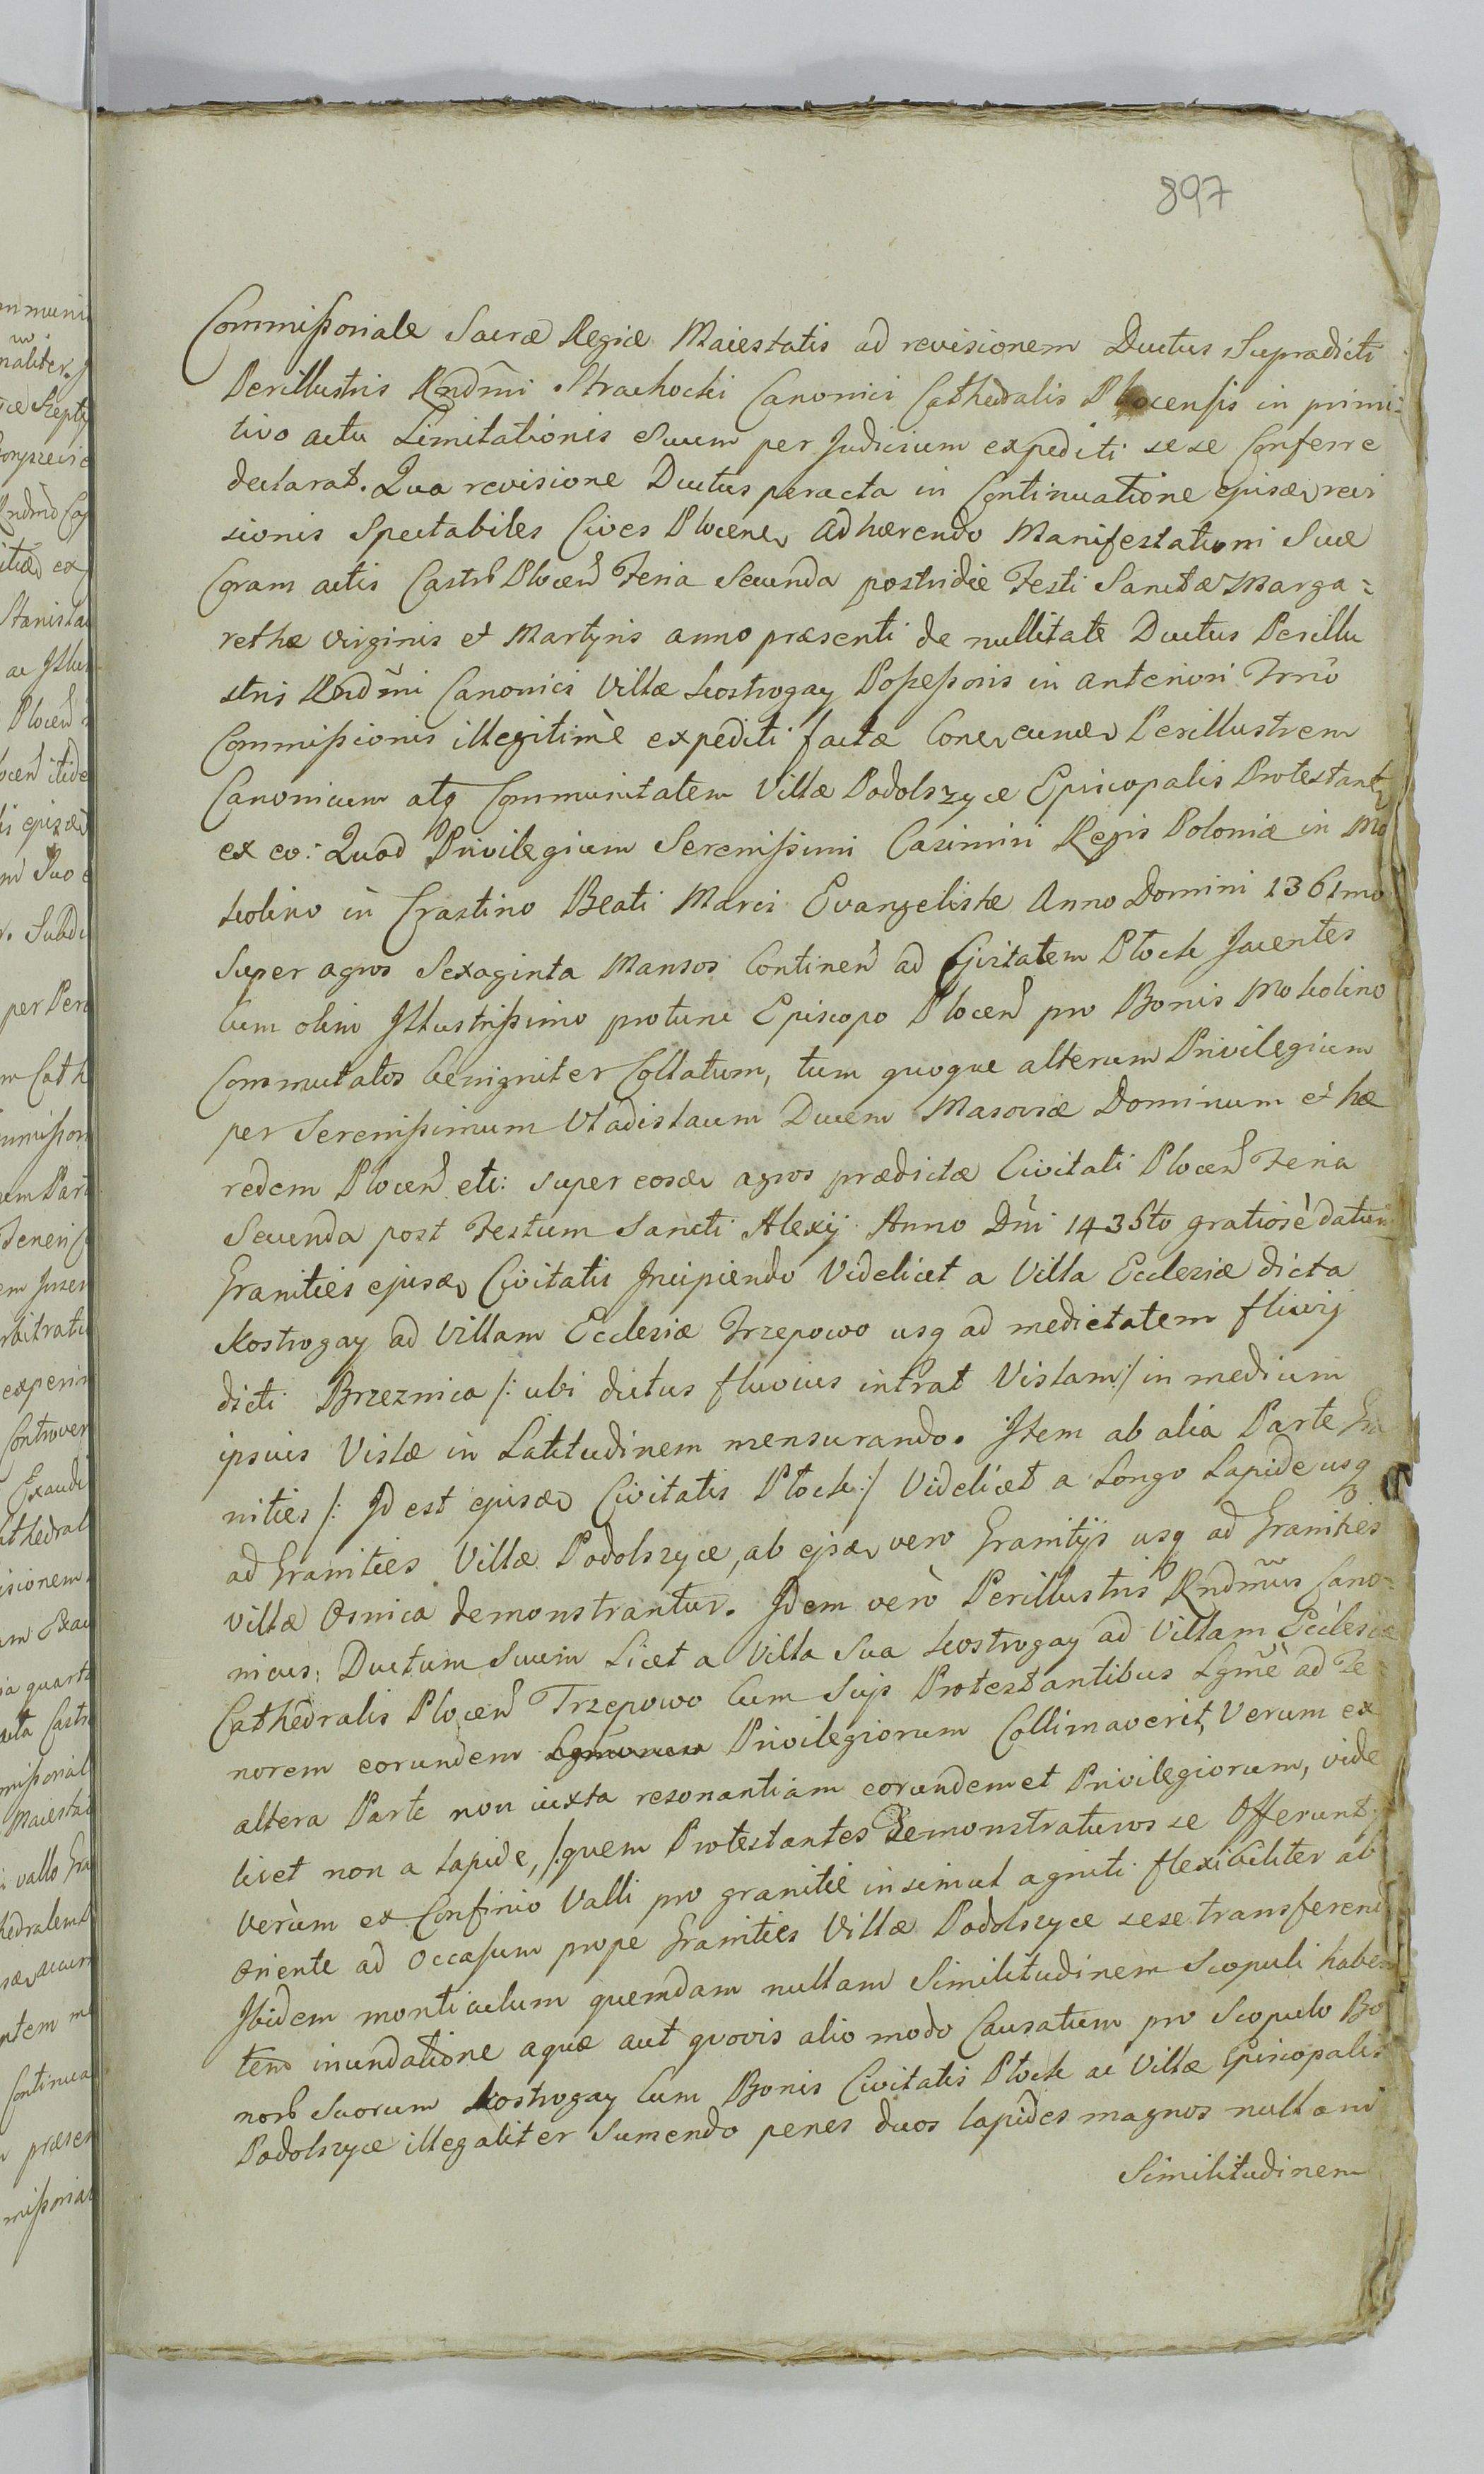 897
Commissoriale Sacræ Regiæ Maiestatis ad revisionem Ductus Supradicti
Perillustris Rndmi Strachocki Canonici Cathedralis Plocensis in primi=
tivo actu Limitationis Suum per Judicium expediti sese Conferre
declarat. Qua revisione Ductus peracta in Continuatione ejusd revi
sionis Spectabiles Cives Plocens adhærendo Manifestationi Suæ
Coram actis Castr Plocen Feria Secunda postridie Festi Sanctæ Marga=
rethæ Virginis et Martyris anno præsenti de nullitate Ductus Perillu
stris Rndmi Canonici Villæ Kostrogay Possessoris in anteriori Trno
Commissionis illegitimè expediti factæ Cone eund Perillustrem
Canonicum atq Communitatem Villæ Podolszyce Episcopalis Protestant
ex eo: Quod Privilegium Serenissimi Casimiri Regis Poloniæ in Mo
kolino in Crastino Beati Marci Evangelistæ Anno Domini 1361mo
Super agros Sexaginta Mansos Continen ad Civitatem Płock Jacentes
Cum olim Illustrissimo protunc Episcopo Plocen pro Bonis Mokolino
Commutatos benigniter Collatum, tum quoque alterum Privilegium
per Serenissimum Vladislaum Ducem Masoviæ Dominum et hæ
redem Plocen etc: super eosd agros prædictæ Civitati Plocen Feria
Secunda post Festum Sancti Alexij Anno Dni 1435to gratiosè datum
Granities ejusd Civitatis Incipiendo Videlicet a Villa Ecclesiæ dicta
Kostrogay ad Villam Ecclesiæ Trzepowo usq ad medietatem fluvij
dicti Brzeznica /: ubi dictus fluvius intrat Vislam :/ in medium
ipsius Vislæ in Latitudinem mensurando. Item ab alia Parte Gra
nities /: Id est ejusd Civitatis Płock :/ Videlicet a Longo Lapide usq
ad Granities Villæ Podolszyce, ab ejsd vero Granitijs usq ad Granities
villæ Osnica demonstrantur. Idem verò Perillustris Rndmus Cano=
nicus, Ductum Suum Licet a Villa Sua Kostrogay ad Villam Ecclesiæ
Cathedralis Plocen Trzepowo Cum Suis Protestantibus Lgmè ad Te=
norem eorundem Privilegiorum Collimaverit, Verum ex
altera Parte non iuxta resonantiam eorundemet Privilegiorum, vide
licet non a Lapide, /:quem Protestantes Demonstraturos se Offerunt:/
Verùm ex Confinio Valli pro granitie insimul agniti flexibiliter ab
Oriente ad Occasum prope Granities Villæ Podolszyce sese transferend
Ibidem monticulum quemdam nullam Similitudinem Scopuli haben
tem inundatione aquæ aut quovis alio modo Causatum pro Scopulo Bo
nor Suorum Kostrogay Cum Bonis Civitatis Płock ac Villæ Episcopalis
Podolszyce illegaliter Sumendo penes duos lapides magnos nullam
Similitudinem